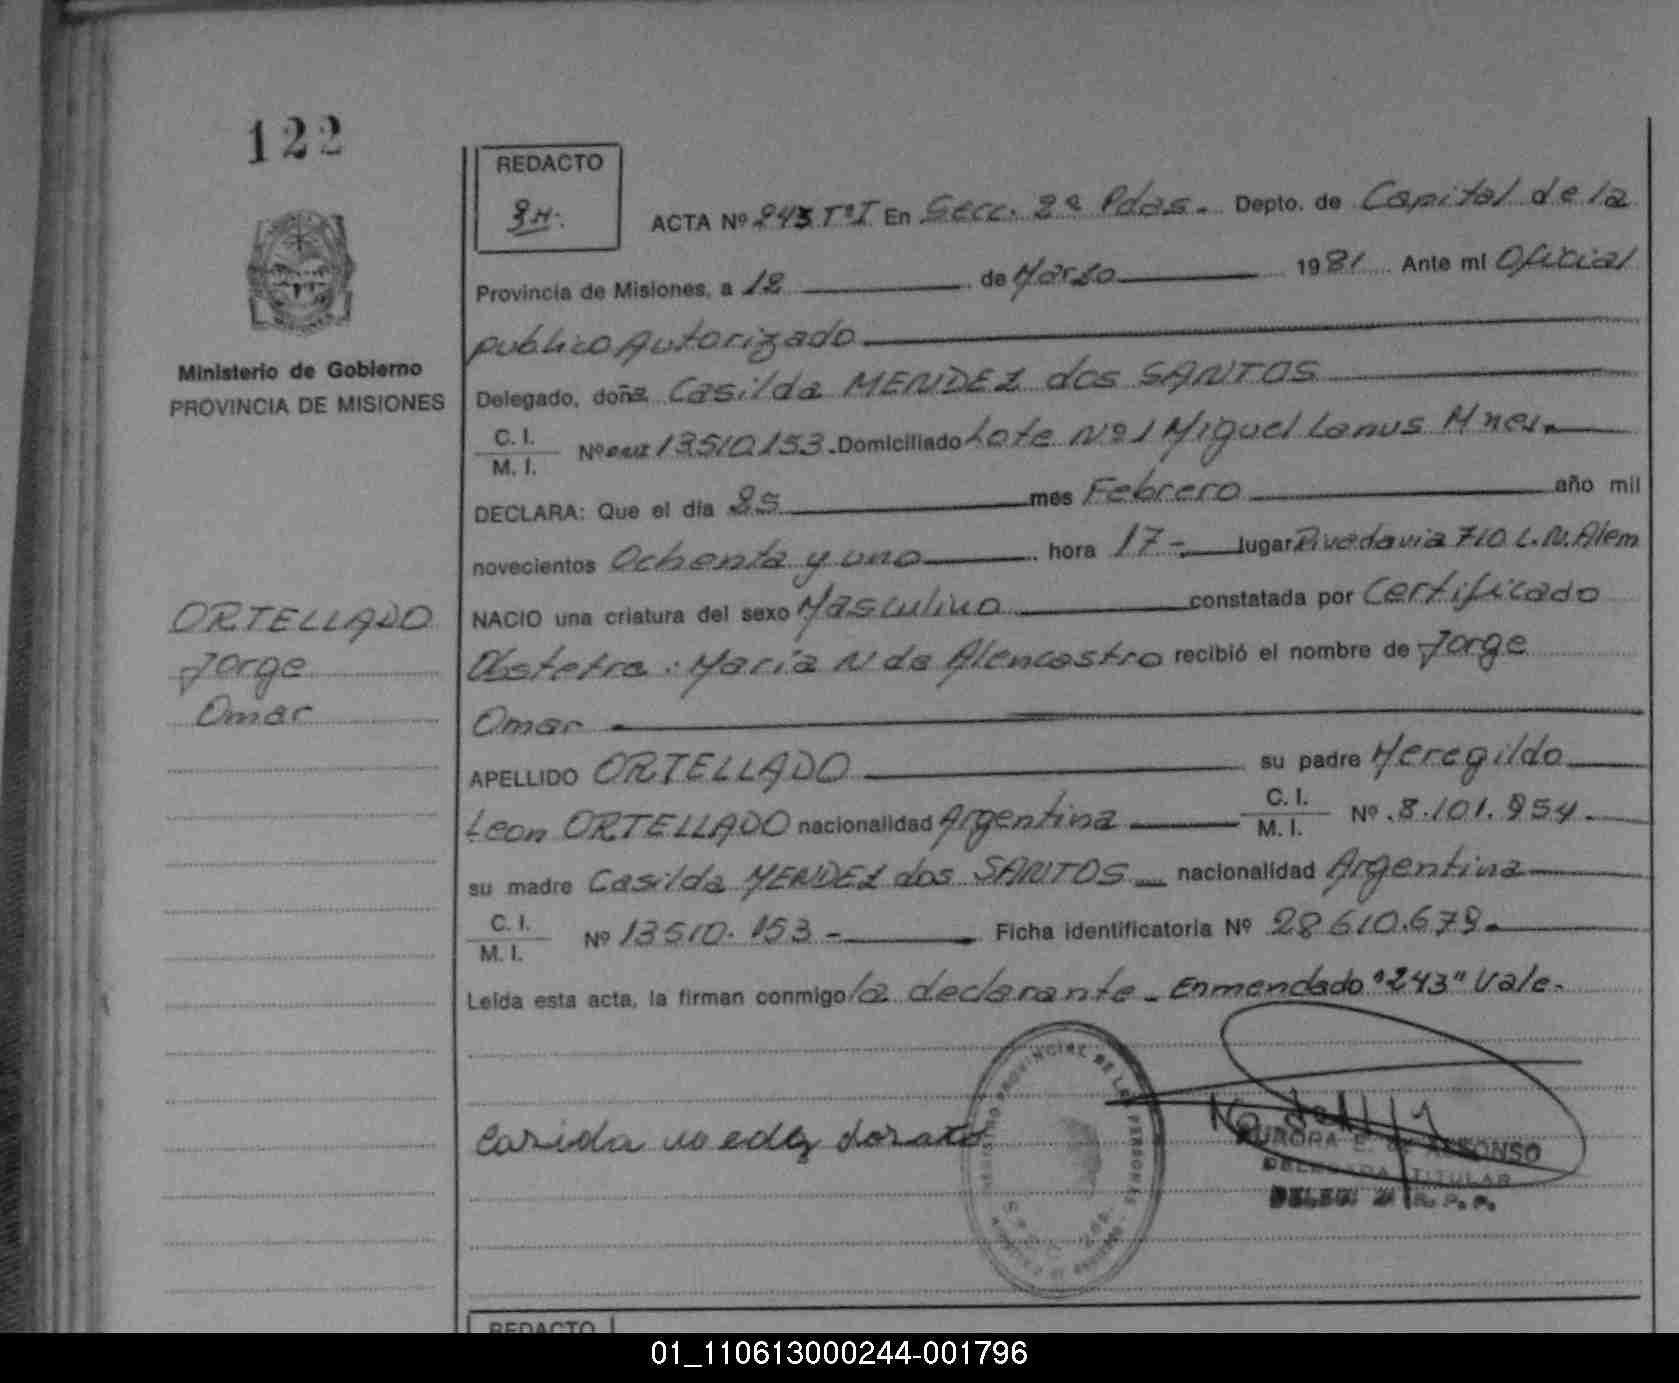 122
REDACTO
ACTA Nº 243 TºI En Secc. 2ª Pdas. Depto. de Capital de la
Provincia de Misiones, a 12 de Marzo 1981 Ante mi Oficial
publico Autorizado
Ministerio de Gobierno
PROVINCIA DE MISIONES
Delegado, doña Casilda MENDEZ dos SANTOS
C. I.
M. I.
Nº 13510.153. Domiciliado Lote Nº1 Miguel Lanus Mnes.
DECLARA: Que el día 25 mes Febrero año mil
novecientos Ochenta y uno hora 17 - lugar Rivadavia 710 L.N. Alem
NACIO una criatura del sexo Masculino constatada por Certificado
Obstetra: Maria N de Alencastro recibió el nombre de Jorge
Omar
ORTELLADO
Jorge
Omar
APELLIDO ORTELLADO su padre Heregildo
Leon ORTELLADO nacionalidad Argentina C. I.
M. I. Nº 8.101.954
su madre Casilda MENDEZ dos SANTOS nacionalidad Argentina
C. I.
M. I.
Nº 13510.153 - Ficha identificatoria Nº 28610.679.
Leída esta acta, la firman conmigo la declarante - Enmendado "243" Vale.
REGISTRO PROVINCIAL DE LAS PERSONAS
AURORA E. de ALFONSO
DELEGADA TITULAR
R. P. P.
REDACTO
01_110613000244-001796